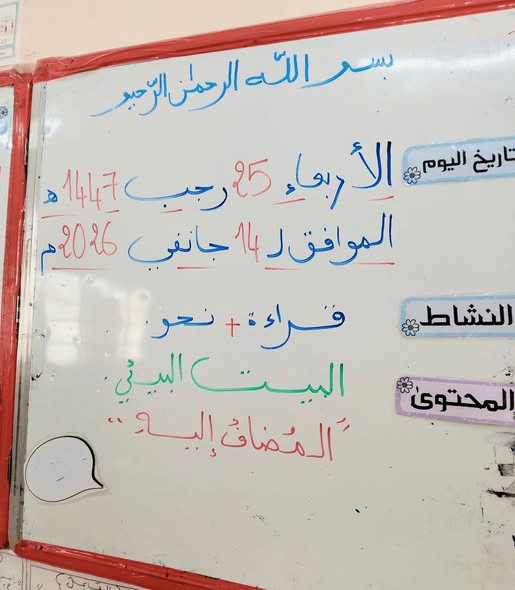 بسم الله الرحمان الرحيم
تاريخ اليوم
الأربعاء 25 رجب 1447 هـ
الموافق لـ 14 جانفي 2026 م
النشاط
قراءة + نحو.
المحتوى
البيت البيئي.
"المُضافُ إليهِ"